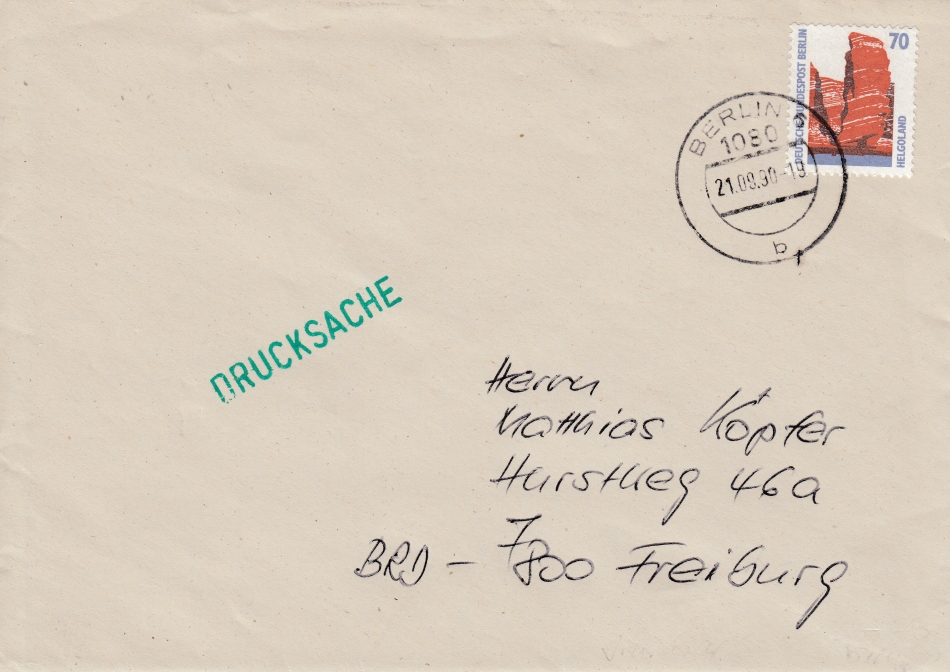 70
DEUTSCHE BUNDESPOST BERLIN
HELGOLAND
BERLIN 5
1080
21.09.90-19
b
DRUCKSACHE
Herrn
Matthias Köpfer
Hurstweg 46a
BRD - 7800 Freiburg